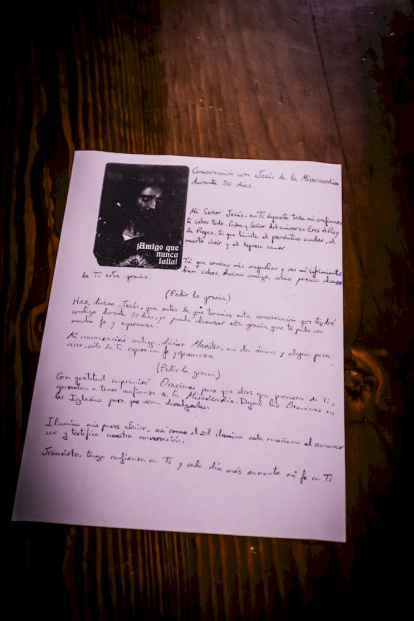 Conversación con Jesús de la Misericordia
durante 30 días.
Mi Señor Jesús, en Ti deposito toda mi confianza
tú sabes todo. Padre y Señor del universo. Eres el Rey
de Reyes, tú que hiciste al paralítico andar, al
muerto vivir y al leproso sanar
¡Amigo que
nunca
falla!
Tú que conoces mis angustias y ves mi sufrimiento
bien sabes, divino amigo, cómo preciso alcanzar
de Ti esta gracia.
(Pedir la gracia)
Haz, divino Jesús, que antes de que termine esta conversación que tendré
contigo durante 30 días, yo pueda alcanzar esta gracia que te pido con
mucha fe y esperanza.
Mi conversación contigo, divino Maestro, me da ánimo y alegría para
vivir, sólo de Ti espero con fe y esperanza
(Pedir la gracia)
Con gratitud imprimiré Oraciones para que otros que precisen de Ti,
aprendan a tener confianza en la Misericordia. Dejaré las Oraciones en
las Iglesias para que sean divulgadas.
Ilumina mis pasos Señor, así como el sol ilumina cada mañana el amanecer
y testifica nuestra conversación.
Jesucristo, tengo confianza en Ti y cada día más aumenta mi fe en Ti